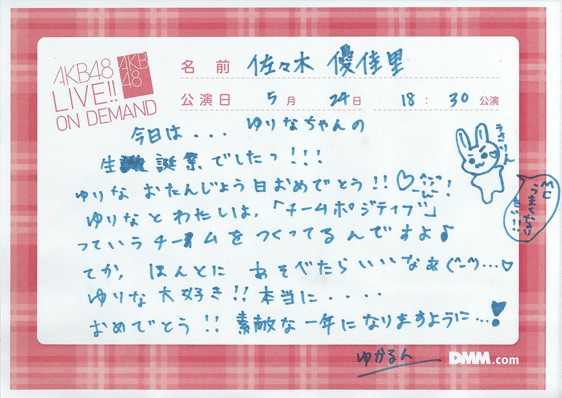 AKB48
LIVE!!
ON DEMAND
AKB
48
名前 佐々木 優佳里
公演日 5月 24日 18:30 公演
今日は... ゆりなちゃんの
生誕祭でしたっ!!!
ゆりな おたんじょう日おめでとう!!♡
ゆりなとわたしは、「チームポジティブ」
っていうチームをつくってるんですよ♪
てか、ほんとに あそべたらいいなあ(^-^)...♡
ゆりな大好き!!本当に....
おめでとう!!素敵な一年になりますように...
ゆかるん
うさりん
MC
うまくなり
たい!!
DMM.com